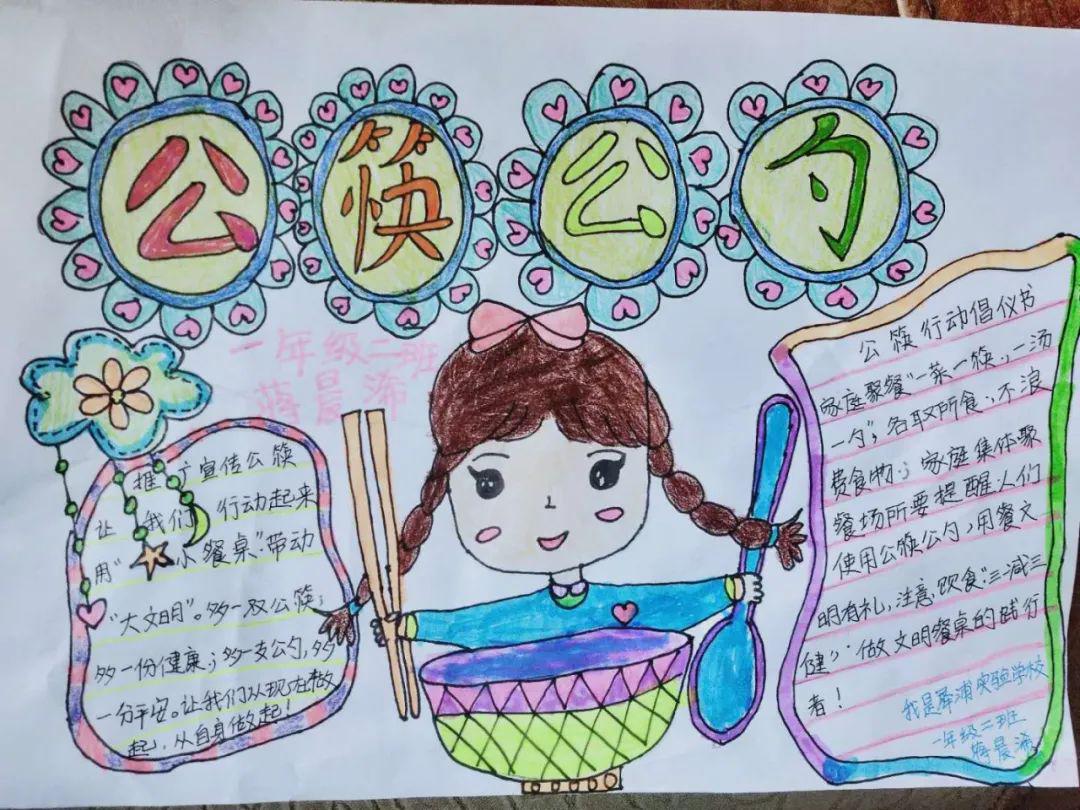 公筷公勺
一年级二班
蒋晨浠
推广宣传公筷
让我们行动起来
用"小餐桌"带动
"大文明"。多一双公筷,
多一份健康;多一支公勺,多
一分平安。让我们从现在做
起,从自身做起!
公筷行动倡仪书
家庭聚餐"一菜一筷,一汤
一勺",各取所食,不浪
费食物;家庭集体聚
餐场所要提醒人们
使用公筷公勺,用餐文
明有礼,注意饮食"三减三
健",做文明餐桌的践行
者!
我是 浦实验学校
一年级二班
蒋晨浠